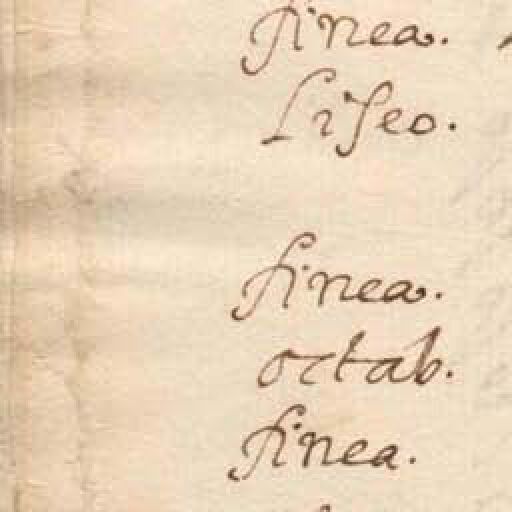 finea.
Liseo.
finea.
octab.
finea.